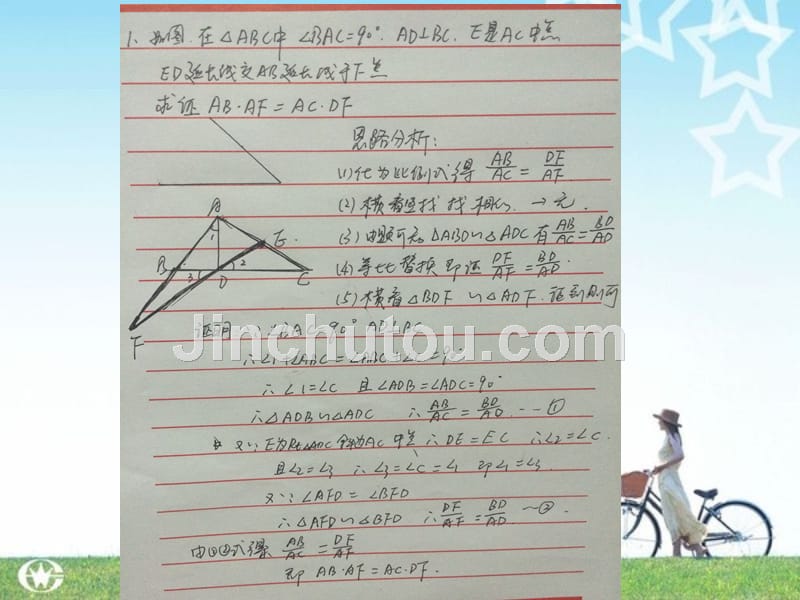 1. 如图. 在△ABC中 ∠BAC=90°. AD⊥BC. E是AC中点
ED延长线交AB延长线于F点
求证 AB·AF=AC·DF
思路分析:
(1) 化为比例式得 AB/AC = DF/AF
(2) 横看竖找 找相似 → 无.
(3) 由题可知 △ABD∽△ADC 有 AB/AC = BD/AD
(4) 等比替换 即证 DF/AF = BD/AD.
(5) 横看 △BDF ∽△ADF. 证到则可
A
1
E.
B
3
D
2
C
F
证明: ∵∠BAC=90° AD⊥BC
∴∠1+∠ABC=∠ABC+∠C=90°
∴∠1=∠C 且∠ADB=∠ADC=90°
∴△ADB∽△ADC ∴ AB/AC = BD/AD --- ①
又∵E为Rt△ADC 斜边AC 中点 ∴DE=EC ∴∠2=∠C.
且∠2=∠3 ∴∠3=∠C=∠1 即∠1=∠3.
又∵∠AFD=∠BFD
∴△AFD∽△BFD ∴ DF/AF = BD/AD --②
由①②式得 AB/AC = DF/AF
即 AB·AF=AC·DF.
Jinchutou.com